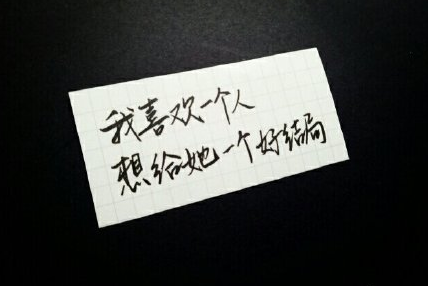 我喜欢一个人
想给她一个好结局